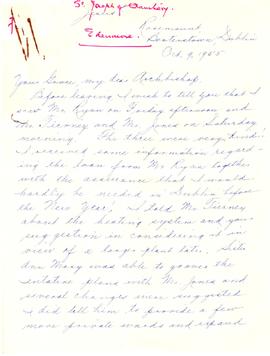 St. Joseph of Cambury
Edenmore
Rosemount
Booterstown, Dublin
Oct. 9, 1955
Your Grace, my dear Archbishop,
Before leaving I wish to tell you that I
saw Mr. Ryan on Friday afternoon and
Mr Tierney and Mr Jones on Saturday
morning. The three were very kind!
I received some information regard-
ing the loan from Mr Ryan together
with the assurance that I would
hardly be needed in Dublin before
the New Year! I told Mr. Tierney
about the heating system and your
suggestion in considering it in
view of a larger plant later. Sister
Ann Mary was able to
tentative plans with Mr Jones and
several changes were suggested.
I did tell him to provide a few
more private wards and expand